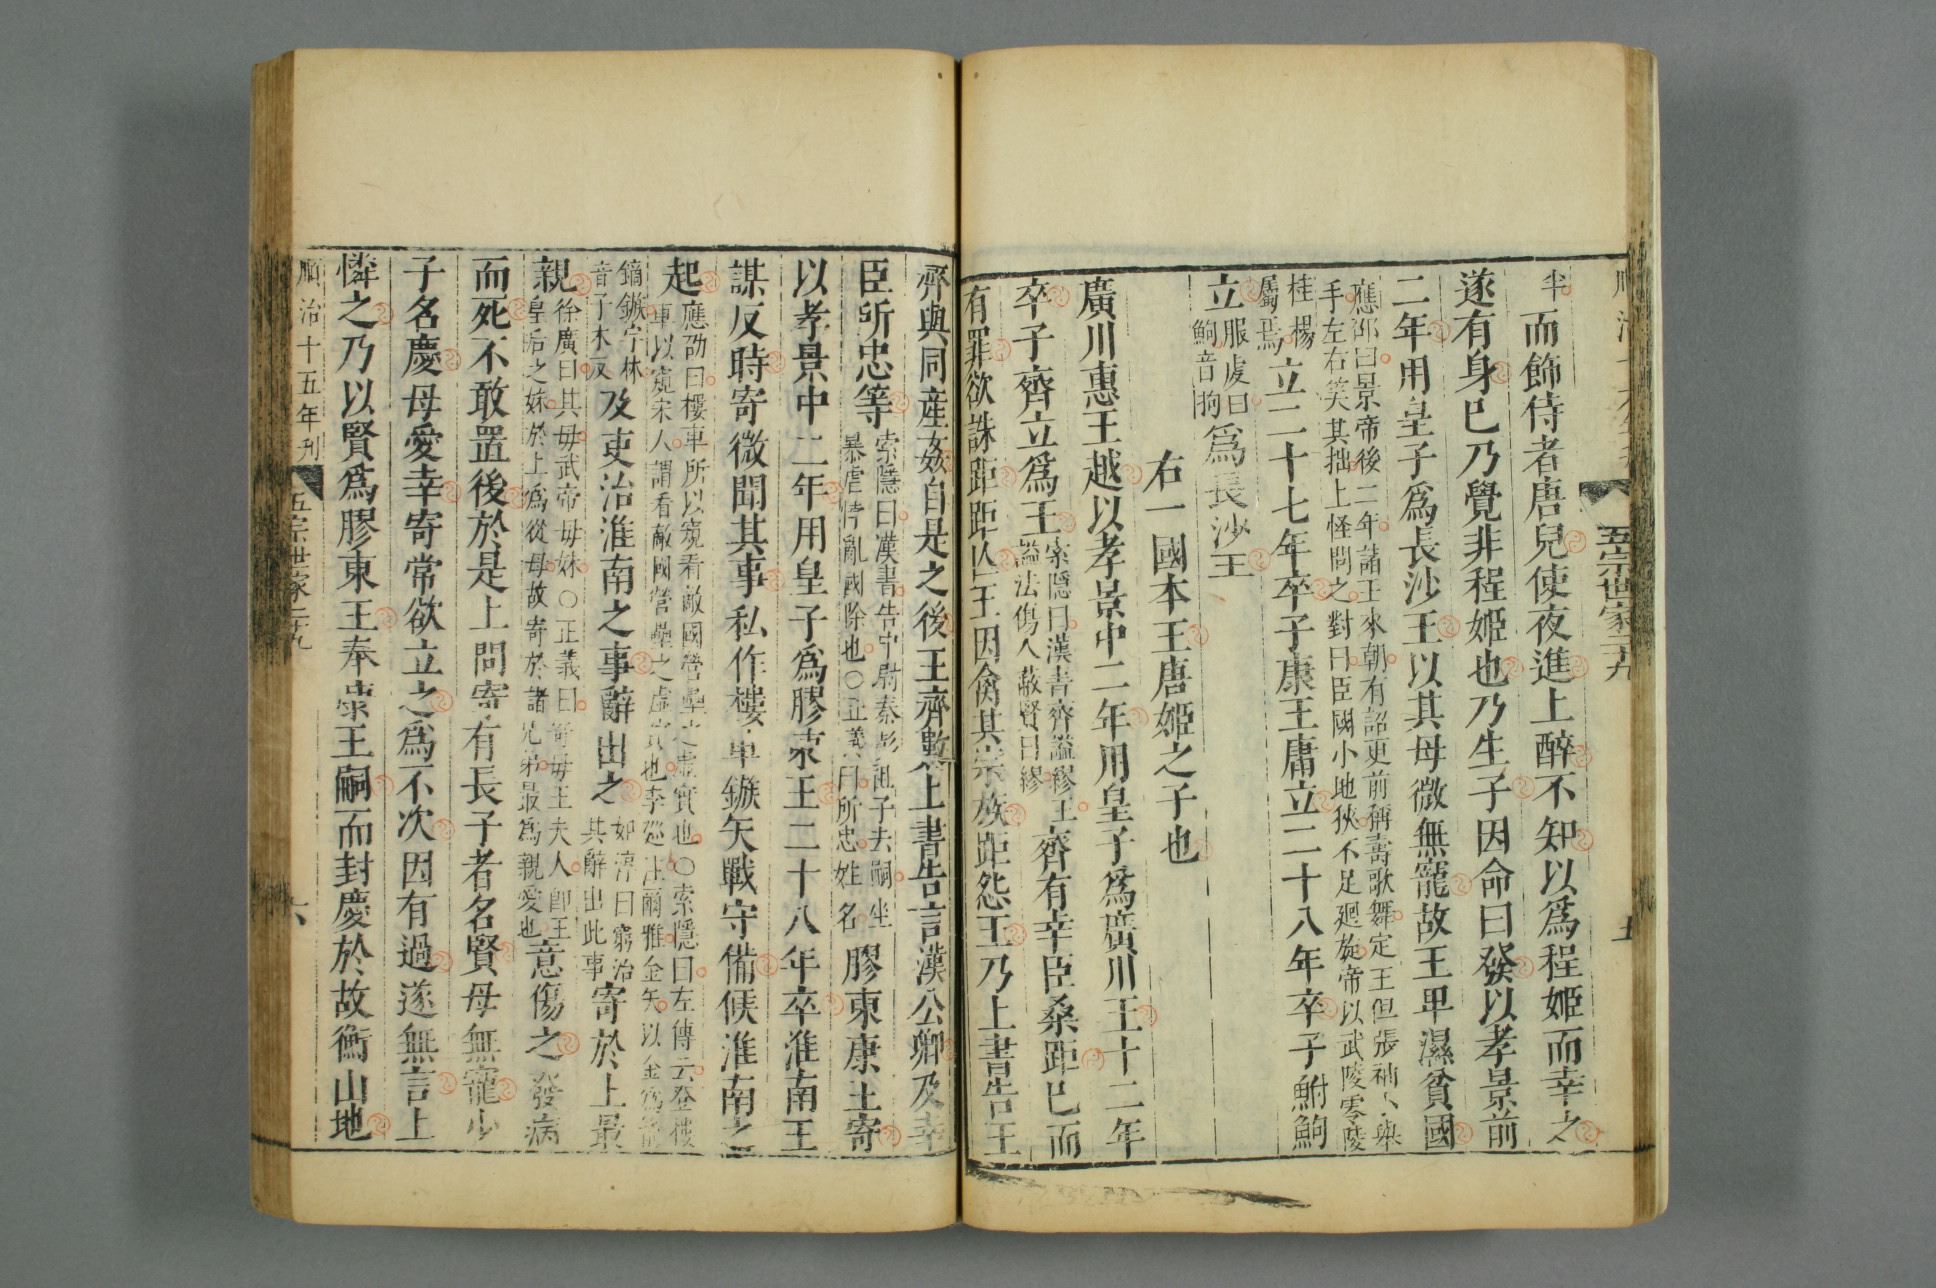 五宗世家二十九
五
半
而飾侍者唐兒使夜進上醉不知以爲程姬而幸之
遂有身已乃覺非程姬也乃生子因命曰發以孝景前
二年用皇子爲長沙王以其母微無寵故王卑濕貧國
應邵曰景帝後二年諸王來朝有詔更前稱壽歌舞定王但張袖小舉
手左右笑其拙上怪問之對曰臣國小地狹不足廻旋帝以武陵零陵
桂楊
屬焉
立二十七年卒子康王庸立二十八年卒子鮒鮈
立
服虔曰
鮈音拘
爲長沙王
右一國本王唐姬之子也
廣川惠王越以孝景中二年用皇子爲廣川王十二年
卒子齊立爲王
索隱曰漢書齊謚繆王
謚法傷人蔽賢曰繆
齊有幸臣桑距已而
有罪欲誅距距亡王因禽其宗族距怨王乃上書告王
齊與同產姦自是之後王齊數上書告言漢公卿及幸
臣所忠等
索隱曰漢書告中尉蔡彭祖子去嗣坐
暴虐悖亂國除也○正義曰所忠姓名
膠東康王寄
以孝景中二年用皇子爲膠東王二十八年卒淮南王
謀反時寄微聞其事私作樓車鏃矢戰守備候淮南之
起
應劭曰樓車所以窺看敵國營壘之虛實也○索隱曰左傳云登樓
車以窺宋人謂看敵國營壘之虛實也李巡注爾雅金矢以金爲箭
鏑鏃字林
音子木反
及吏治淮南之事辭出之
如淳曰窮治
其辭出此事
寄於上最
親
徐廣曰其母武帝母妹○正義曰寄母王夫人卽王
皇后之妹於上爲從母故寄於諸兄弟最爲親愛也
意傷之發病
而死不敢置後於是上問寄有長子者名賢母無寵少
子名慶母愛幸寄常欲立之爲不次因有過遂無言上
憐之乃以賢爲膠東王奉康王嗣而封慶於故衡山地
順治十五年刊
五宗世家二十九
六